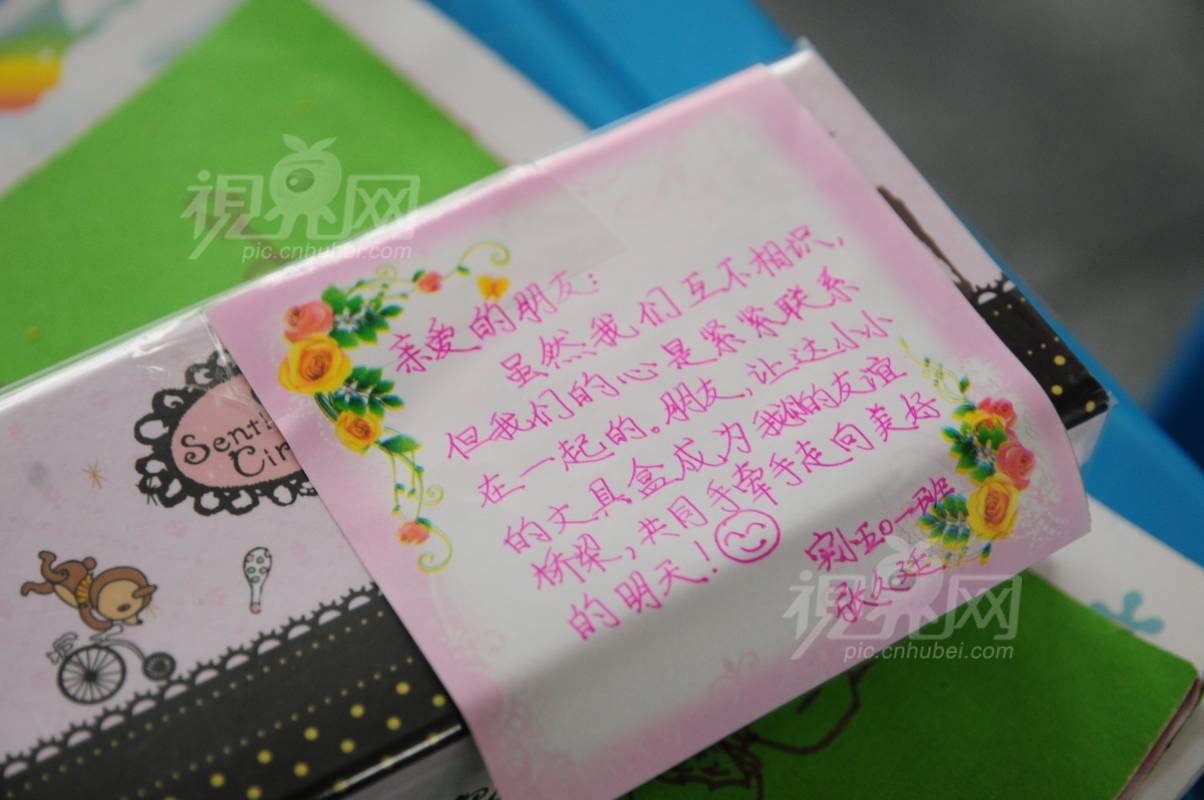 視界网
pic.cnhubei.com
亲爱的朋友：
虽然我们互不相识，
但我们的心是紧紧联系
在一起的。朋友，让这小小
的文具盒成为我们的友谊
桥梁，共同手牵手走向美好
的明天！
实小五〇一班
Senti
Cir
視界网
pic.cnhubei.com